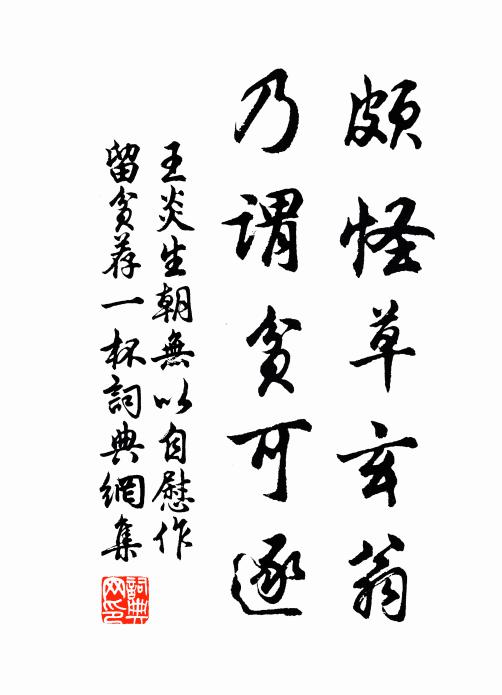 頗怪草玄翁
乃謂貧可逐
王炎生朝無以自慰作
留貧荐一杯詞典網集
詞典網印